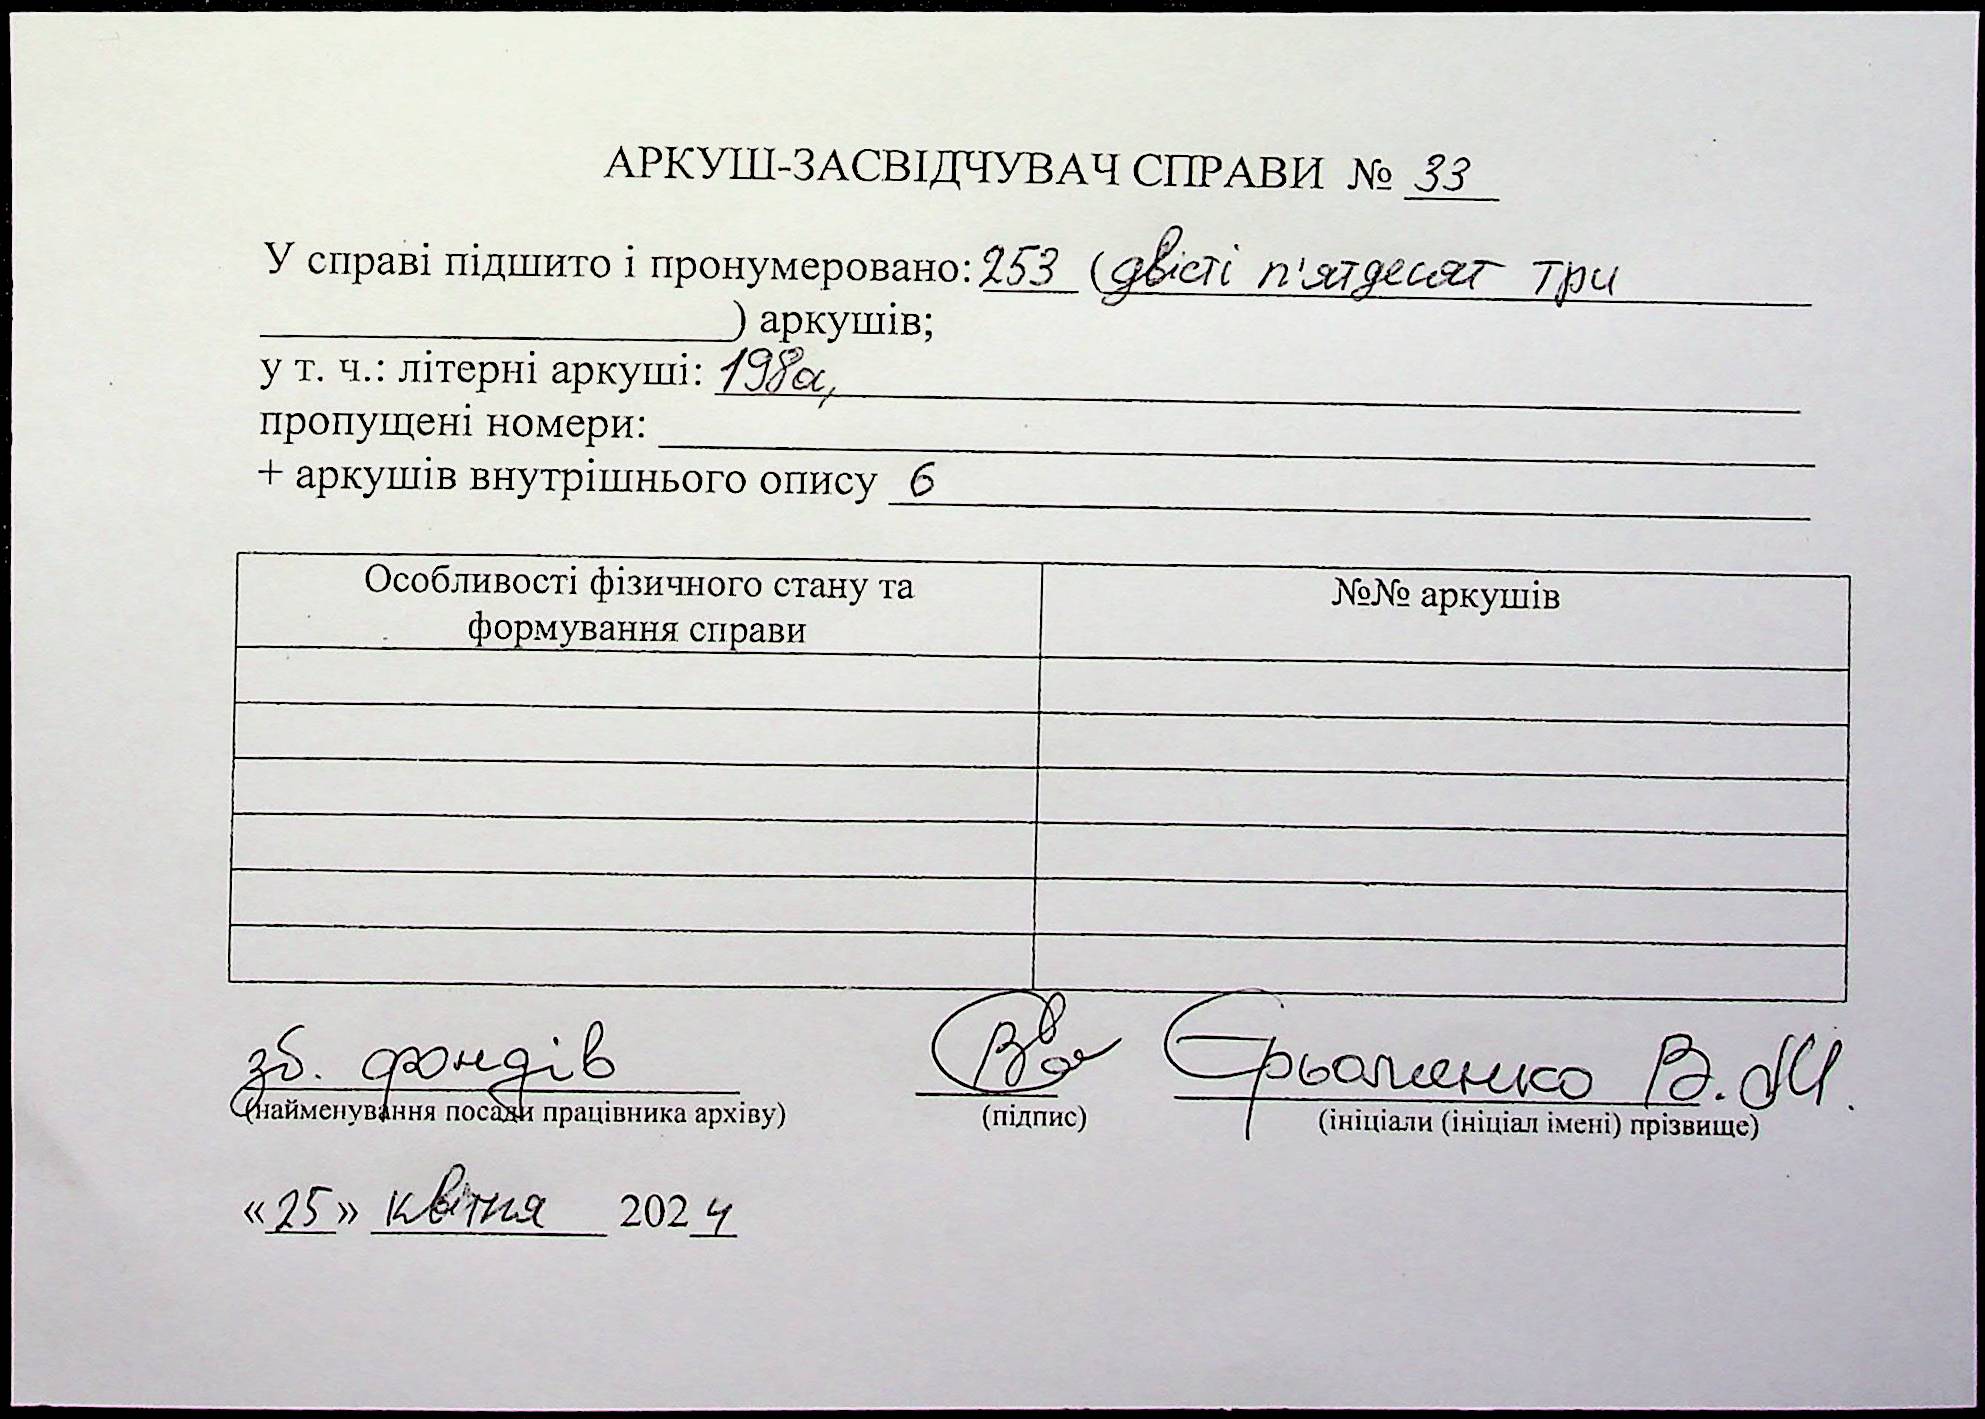 АРКУШ-ЗАСВІДЧУВАЧ СПРАВИ № 33
У справі підшито і пронумеровано: 253 (двісті п'ятдесят три
) аркушів;
у т. ч.: літерні аркуші: 198а,
пропущені номери:
+ аркушів внутрішнього опису 6
Особливості фізичного стану та
формування справи
№№ аркушів
зб. фондів
Єрьоменко В. М.
(найменування посади працівника архіву) (підпис) (ініціали (ініціал імені) прізвище)
«25» квітня 2024